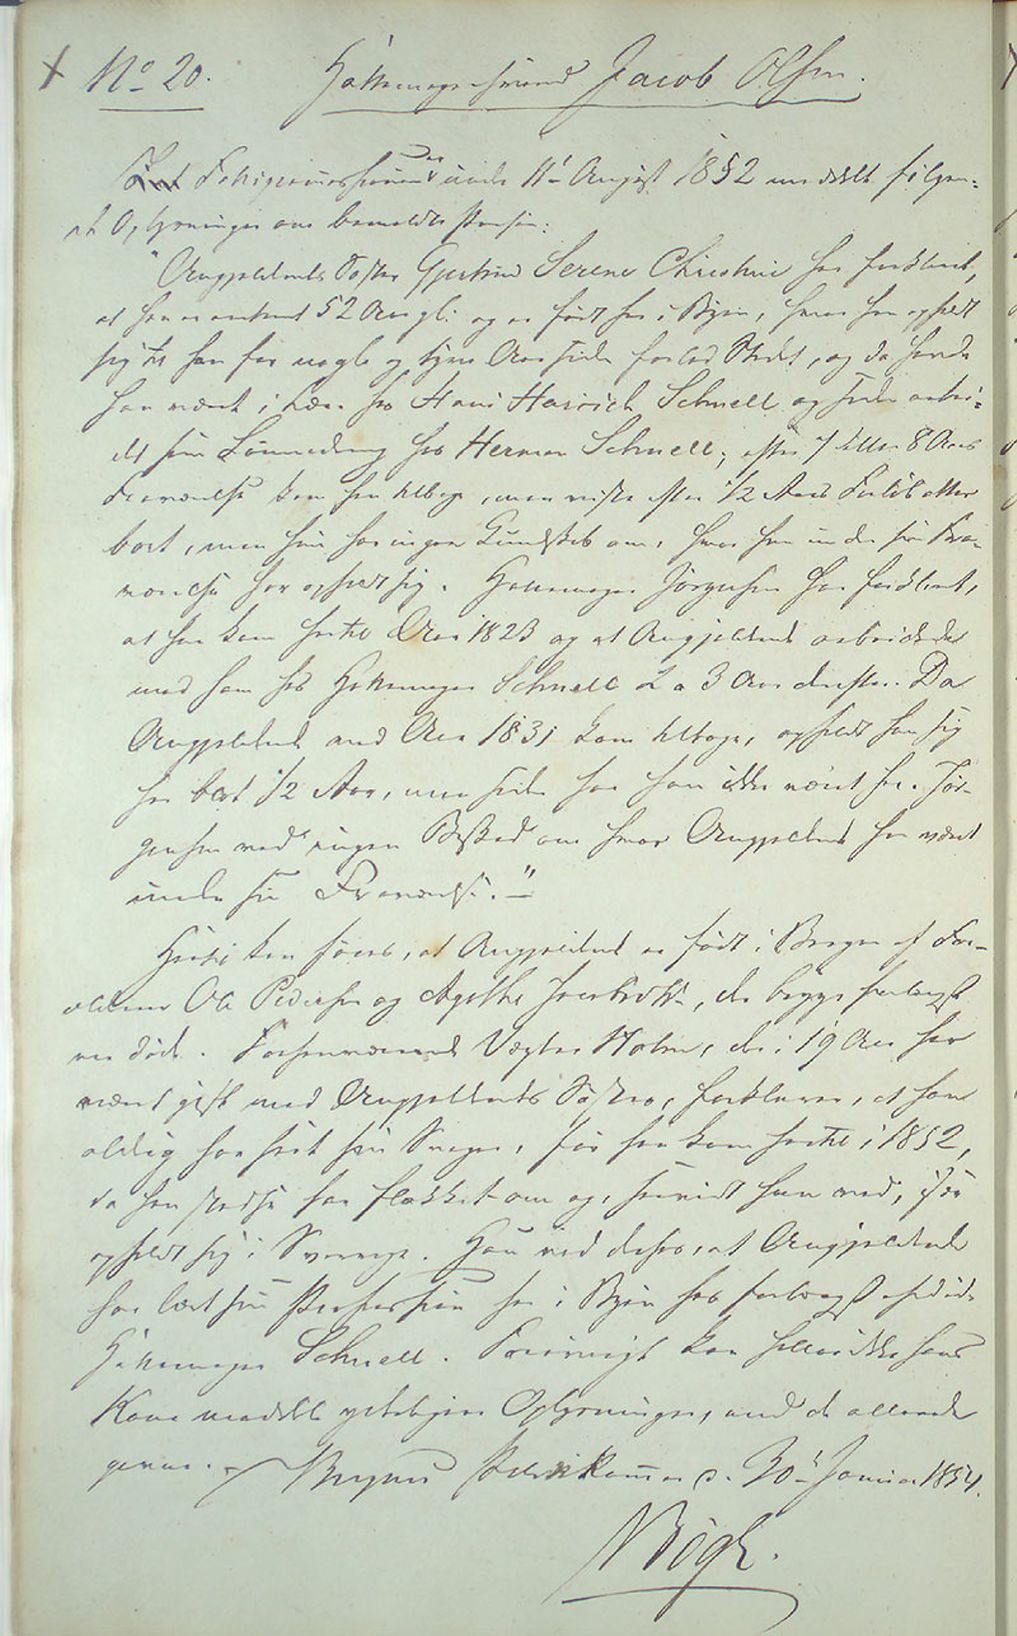 No 20. Hattemagersvend Jacob Olsen.
Fattigcommissionen under 11te August 1852 meddelt følgen-
de Oplysninger om bemeldte Person:
"Angjeldendes Søster Gjertrud Serene Christine har forklaret,
at han er omtrent 52 Aar gl: og er født her i Byen, hvor han opholdt
sig til han for nogle og tyve Aar siden forlod Stedet, og da havde
han været i Lære hos Hans Hinrich Schnell og siden arbei-
det som hos Herman Schnell; efter 7 eller 8 Aars
Fraværelse kom han tilbage, men reiste efter 1/2 Aars Forløb atter
bort, men hun har ingen Kundskab om, hvor han under sin Fra-
værelse har opholdt sig. Hattemager Jörgensen har forklaret,
at han kom hertil Aar 1823 og at Angjeldende arbeidede
med ham hos Hattemager Schnell 2 a 3 Aar derefter. Da
Angjeldende ved Aar 1831 kom tilbage, opholdt han sig
her blot 1/2 Aar, men siden har han ikke været her. Jör-
gensen ved ingen Besked om hvor Angjeldende har været
under sin Fraværelse."
Hertil kan føies, at Angjeldende er født i Bergen af For-
ældrene Ole Pedersen og Agethe, der begge forlængst
ere døde. Forhenværende Vægter Holm, der i 19 Aar har
været gift med Angjeldendes Søster, forklarer, at han
aldrig har seet sin Svoger, før han kom hertil i 1852,
da han stedse har flakket om og, saavidt han ved, især
opholdt sig i Sverrige. Han ved derhos, at Angjeldende
har lært sin Profession her i Byen hos forlængst afdøde
Hattemager Schnell. Forøvrigt kan heller ikke hans
Kone meddele yderligere Oplysninger, end de allerede
givne. Bergens Politikammer d. 30te Januar 1854.